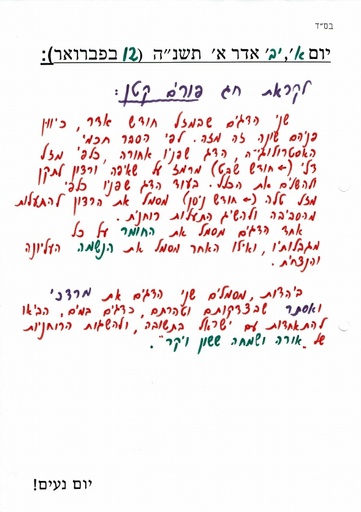 בס"ד
יום א', יב' אדר א' תשנ"ה (12 בפברואר):
לקראת חג פורים קטן:
שני הדגים שבמזל חודש אדר, כיוון
פניהם שונה זה מזה. לפי הספר חכמי
האסטרולוגיה, הדג שפניו אחורה, כלפי מזל
דלי (← חודש שבט) מרמז על שאיפה ורצון לתקן
ולהשלים את הכלל. בעוד הדג שפניו כלפי
מזל טלה (← חודש ניסן) מסמל את הרצון להתעלות
מהסביבה ולהשיג התעלות רוחנית.
אחד הדגים מסמל את החומר על כל
מגבלותיו, ואילו האחר מסמל את הנשמה העליונה
והנצחית.
ביהדות, מסמלים שני הדגים את מרדכי
ואסתר שבצדקותם וטהרתם, כדגים במים, הביאו
להתאחדות עם ישראל בתשובה, ולהשגות הרוחניות
של "אורה ושמחה ששון ויקר".
יום נעים!